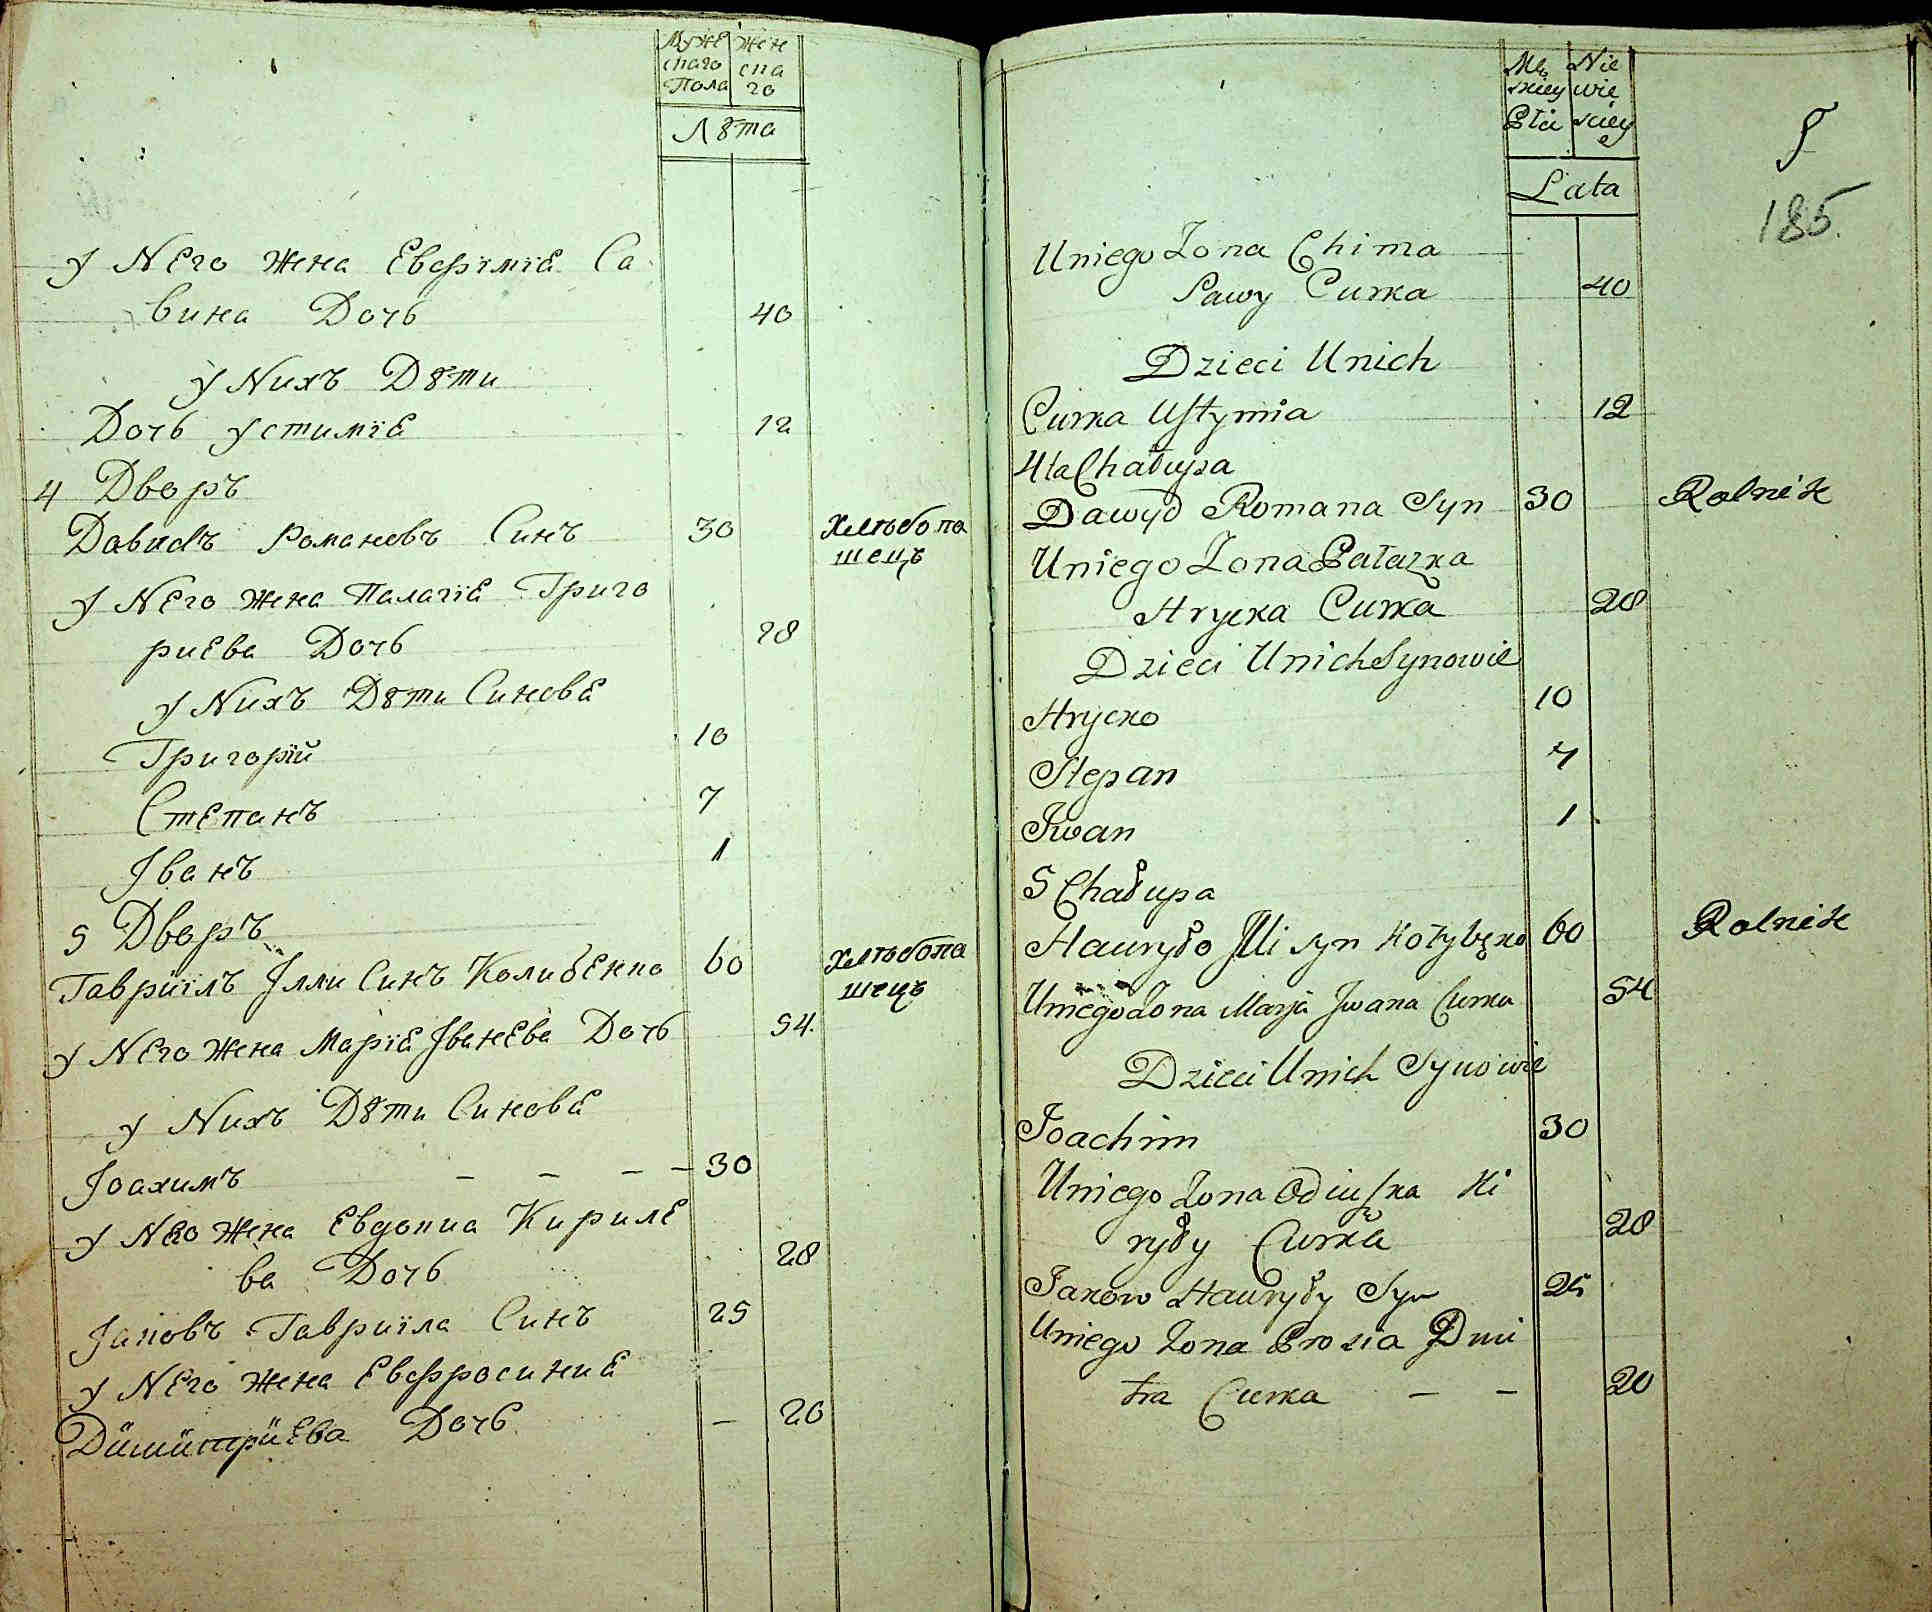 Муже Жен
скаго ска
Пола го
Лѣта
у Него Жена Евфіміа Са
вина Дочь 40
у Нихъ Дѣти
Дочь Устиміа 12
4 Дворъ
Давидъ Романовъ Синъ 30 Хлѣбопа
шецъ
у Него Жена Палагіа Григо
риева Дочь 28
у Нихъ Дѣти Синова
Григорій 10
Степанъ 7
Іванъ 1
5 Дворъ
Гавриілъ Ілли Синъ Колибенко 60 Хлѣбопа
шецъ
у Него Жена Маріа Іванева Дочь 54
у Нихъ Дѣти Синова
Іоахимъ - - - - 30
у Него Жена Евдокиа Кириле
ва Дочь 28
Іаковъ Гавриіла Синъ 25
у Него Жена Евфросиниа
Димитріева Дочь - 20
Mę Nie
skiey wie
Płci sciey
Lata
185.
Uniego Zona Chima
Sawy Curka 40
Dzieci Unich
Curka Ustymia 12
4ta Chałupa
Dawyd Romana Syn 30 Rolnik
Uniego Zona Pałazka
Hrycka Curka 28
Dzieci Unich Synowie
Hrycko 10
Stepan 7
Iwan 1
5 Chałupa
Hauryło Illi syn Kołybęko 60 Rolnik
Uniego Zona Marja Iwana Curka 54
Dzieci Unich Synowie
Joachim 30
Uniego Zona Odiuska Ki
ryły Curka 28
Jakow Hauryły Syn 25
Uniego Zona Prosia Dmi
tra Curka - - 20